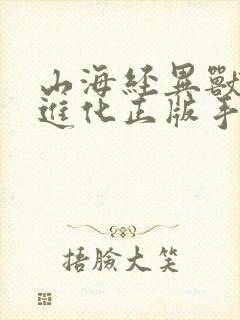 山海經異獸
進化正版手
捂臉大笑